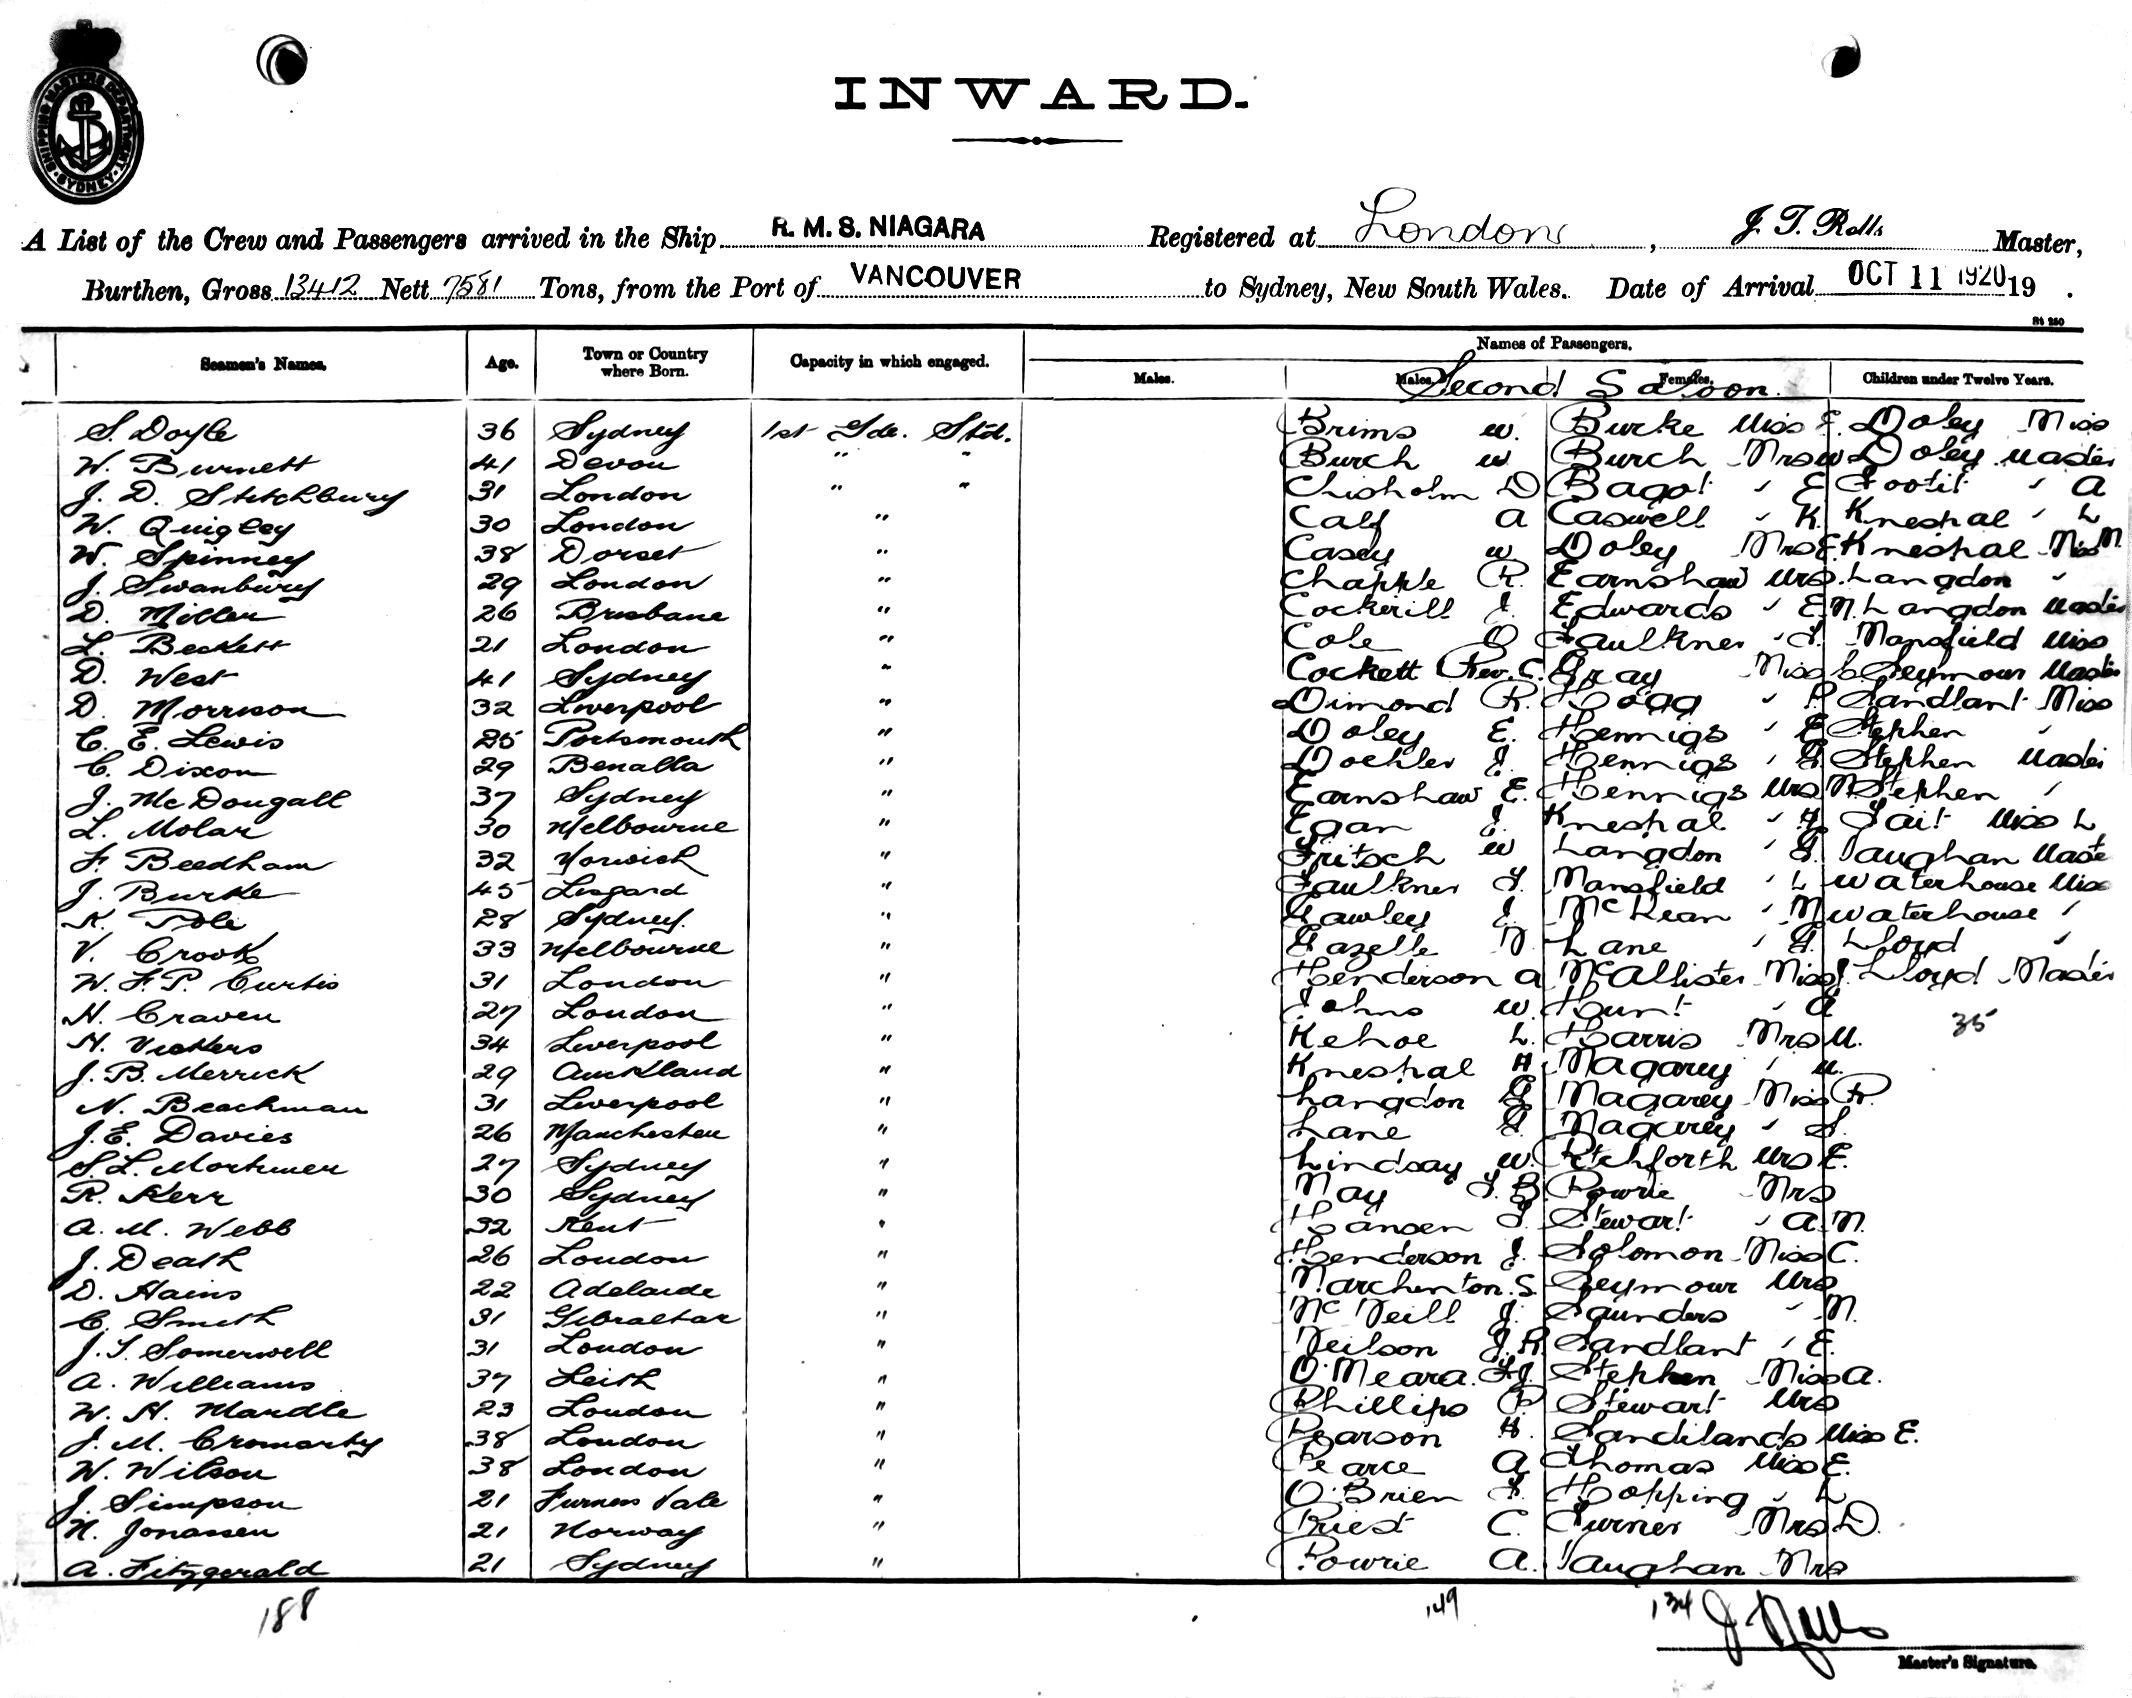 SHIPPING MASTERS DEPARTMENT
SYDNEY
INWARD.
A List of the Crew and Passengers arrived in the Ship R. M. S. NIAGARA Registered at London, J. T. Rolls Master,
Burthen, Gross 13412 Nett 7581 Tons, from the Port of VANCOUVER to Sydney, New South Wales. Date of Arrival OCT 11 1920 19 .
Seamen's Names. Age. Town or Country where Born. Capacity in which engaged. Names of Passengers.
Males. Males. Females. Children under Twelve Years.
Second Saloon.
S. Doyle 36 Sydney 1st Gde. Std. Brims W. Burke Miss E. Doley Miss
W. Burnett 41 Devon " " Burch W Burch Mrs W Doley Master
J. D. Stitchbury 31 London " " Chisholm D Bagot " E Footit " A
W. Quigley 30 London " Calf A Caswell " K. Kneshal " L
W. Spinney 38 Dorset " Casey W Doley Mrs E. Kneshal Miss M.
J. Swanbury 29 London " Chapple R. Earnshaw Mrs. Langdon "
D. Miller 26 Brisbane " Cockerill J. Edwards " E.M. Langdon Master
L. Beckett 21 London " Cole O Faulkner " F. Mansfield Miss
D. West 41 Sydney " Cockett Rev. C. Gray Miss C. Seymour Master
D. Morrison 32 Liverpool " Dimond R. Hogg " P. Sandlant Miss
C. E. Lewis 25 Portsmouth " Doley E. Hennigs " E Stephen "
C. Dixon 29 Benalla " Doehler J. Hennigs " G. Stephen Master
J. McDougall 37 Sydney " Earnshaw E. Hennigs Mrs N. Stephen "
L. Molar 30 Melbourne " Egan J. Kneshal " H Tait Miss L
F. Beedham 32 Norwich " Fritsch W Langdon " G. Vaughan Master
J. Burke 45 Lisgard " Faulkner F. Mansfield " L Waterhouse Miss
K. Pole 28 Sydney. " Gawley J. McKean " M Waterhouse "
V. Crook 33 Melbourne " Gazelle N Lane " G. Lloyd "
W. F. P. Curtis 31 London " Henderson A McAllister Miss J. Lloyd Master
H. Craven 27 London " Johns W. Hunt " G
H. Vickers 34 Liverpool " Kehoe L. Harris Mrs M. 35
J. B. Merrick 29 Auckland " Kneshal H. Magarey " M.
N. Beachman 31 Liverpool " Langdon G Magarey Miss R.
J. E. Davies 26 Manchester " Lane G. Magarey " S.
S. L. Mortimer 27 Sydney " Lindsay W. Pitchforth Mrs E.
R. Kerr 30 Sydney " May F. B. Powrie Mrs
A. M. Webb 32 Kent " Hansen F. Stewart " A. M.
J. Death 26 London " Henderson J. Solomon Miss C.
D. Hains 22 Adelaide " Marchenton. S. Seymour Mrs
C. Smith 31 Gibraltar " McNeill J. Saunders " M.
J. S. Somerwell 31 London " Neilson J. R. Sandlant " E.
A. Williams 37 Leith " O'Meara. F. J. Stephen Miss A.
W. H. Mardle 23 London " Phillips P. Stewart Mrs
J. M. Cromarty 38 London " Pearson H. Sandilands Miss E.
W. Wilson 38 London " Pearce A Thomas Miss E.
J. Simpson 21 Furness Vale " O'Brien F. Hopping " L
N. Jonassen 21 Norway " Priest C. Turner Mrs D.
A. Fitzgerald 21 Sydney " Powrie A. Vaughan Mrs
188 149 134
J. Rolls
Master's Signature.